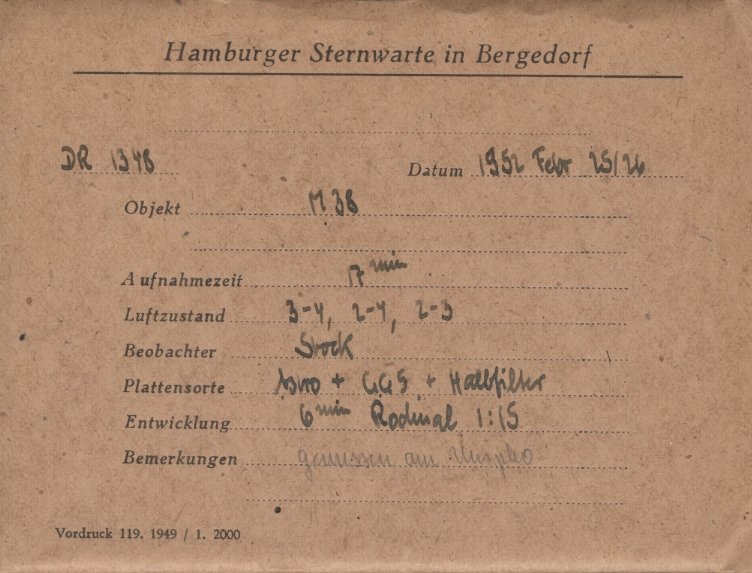 Hamburger Sternwarte in Bergedorf
DR 1348 Datum 1952 Febr 25/26
Objekt M 38
Aufnahmezeit 17 min
Luftzustand 3-4, 2-4, 2-3
Beobachter Stock
Plattensorte + GG5 + Halbfilter
Entwicklung 6 min Rodinal 1:15
Bemerkungen gemessen am
Vordruck 119. 1949 / 1. 2000